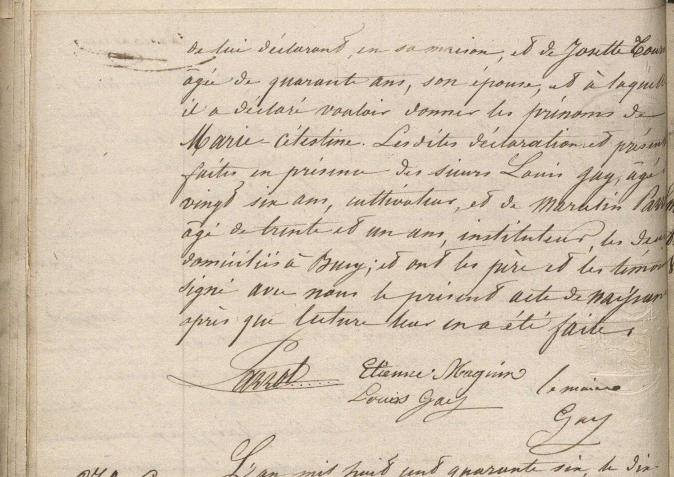 de lui déclarant, en sa maison, et de Josette
âgée de quarante ans, son épouse, et à laquelle
il a déclaré vouloir donner les prénoms de
Marie-Célestine. Les dites déclaration et présen
faites en présence des sieurs Louis Gay, âgé
vingt six ans, cultivateur, et de Marcelin
âgé de trente et un ans, instituteur, les deux
domiciliés à Bucy; et ont les père et les témoi
signé avec nous le présent acte de naissan
après que lecture leur en a été faite.
Parrot Etienne Magnin
Louis Gay le maire
Gay
L'an mil huit cent quarante six, le dix